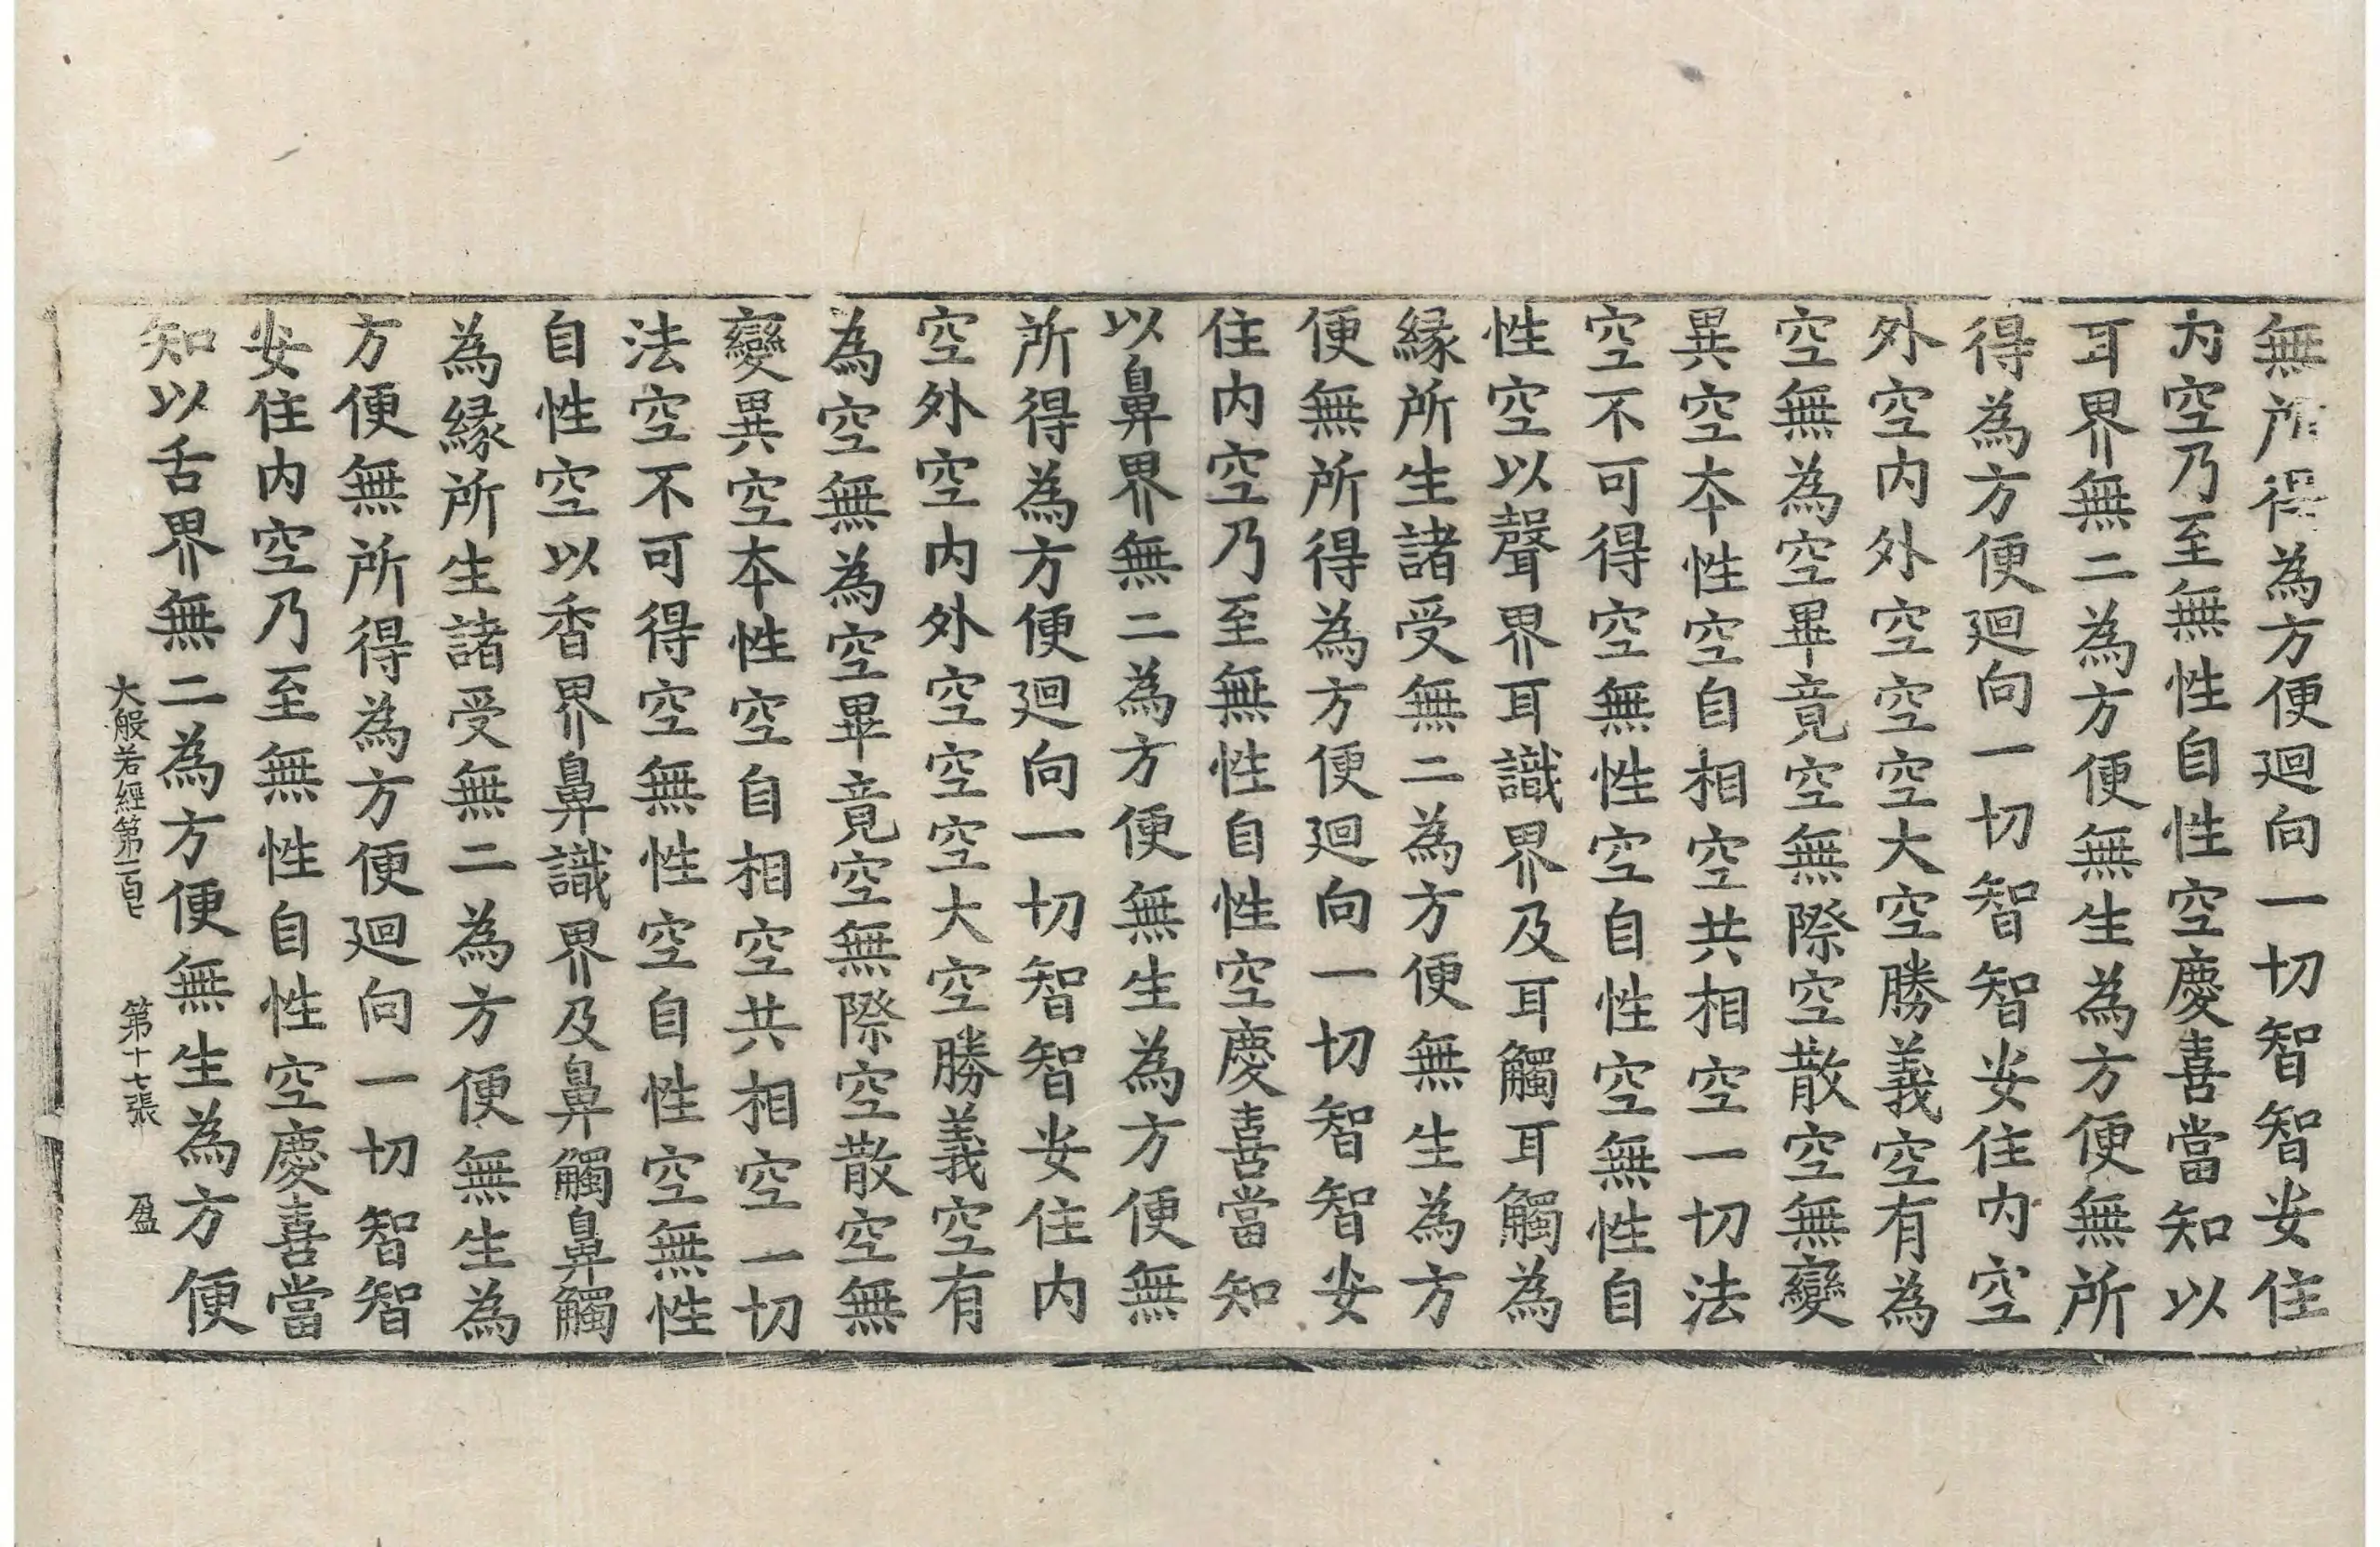 無所得為方便迴向一切智智安住
内空乃至無性自性空慶喜當知以
耳界無二為方便無生為方便無所
得為方便迴向一切智智安住内空
外空内外空空空大空勝義空有為
空無為空畢竟空無際空散空無變
異空本性空自相空共相空一切法
空不可得空無性空自性空無性自
性空以聲界耳識界及耳觸耳觸為
縁所生諸受無二為方便無生為方
便無所得為方便迴向一切智智安
住内空乃至無性自性空慶喜當知
以鼻界無二為方便無生為方便無
所得為方便迴向一切智智安住内
空外空内外空空空大空勝義空有
為空無為空畢竟空無際空散空無
變異空本性空自相空共相空一切
法空不可得空無性空自性空無性
自性空以香界鼻識界及鼻觸鼻觸
為縁所生諸受無二為方便無生為
方便無所得為方便迴向一切智智
安住内空乃至無性自性空慶喜當
知以舌界無二為方便無生為方便
大般若經第一百七 第十七張 盈